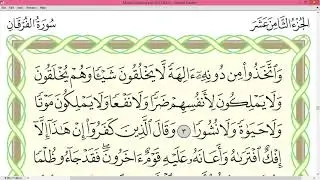 سُورَةُ الفُرْقَانِ
الجُزْءُ الثَّامِنَ عَشَرَ
وَٱتَّخَذُوا۟ مِن دُونِهِۦٓ ءَالِهَةً لَّا يَخْلُقُونَ شَيْـًٔا وَهُمْ يُخْلَقُونَ
وَلَا يَمْلِكُونَ لِأَنفُسِهِمْ ضَرًّا وَلَا نَفْعًا وَلَا يَمْلِكُونَ مَوْتًا
وَلَا حَيَوٰةً وَلَا نُشُورًا ٣ وَقَالَ ٱلَّذِينَ كَفَرُوٓا۟ إِنْ هَٰذَآ إِلَّآ
إِفْكٌ ٱفْتَرَىٰهُ وَأَعَانَهُۥ عَلَيْهِ قَوْمٌ ءَاخَرُونَ ۖ فَقَدْ جَآءُو ظُلْمًا